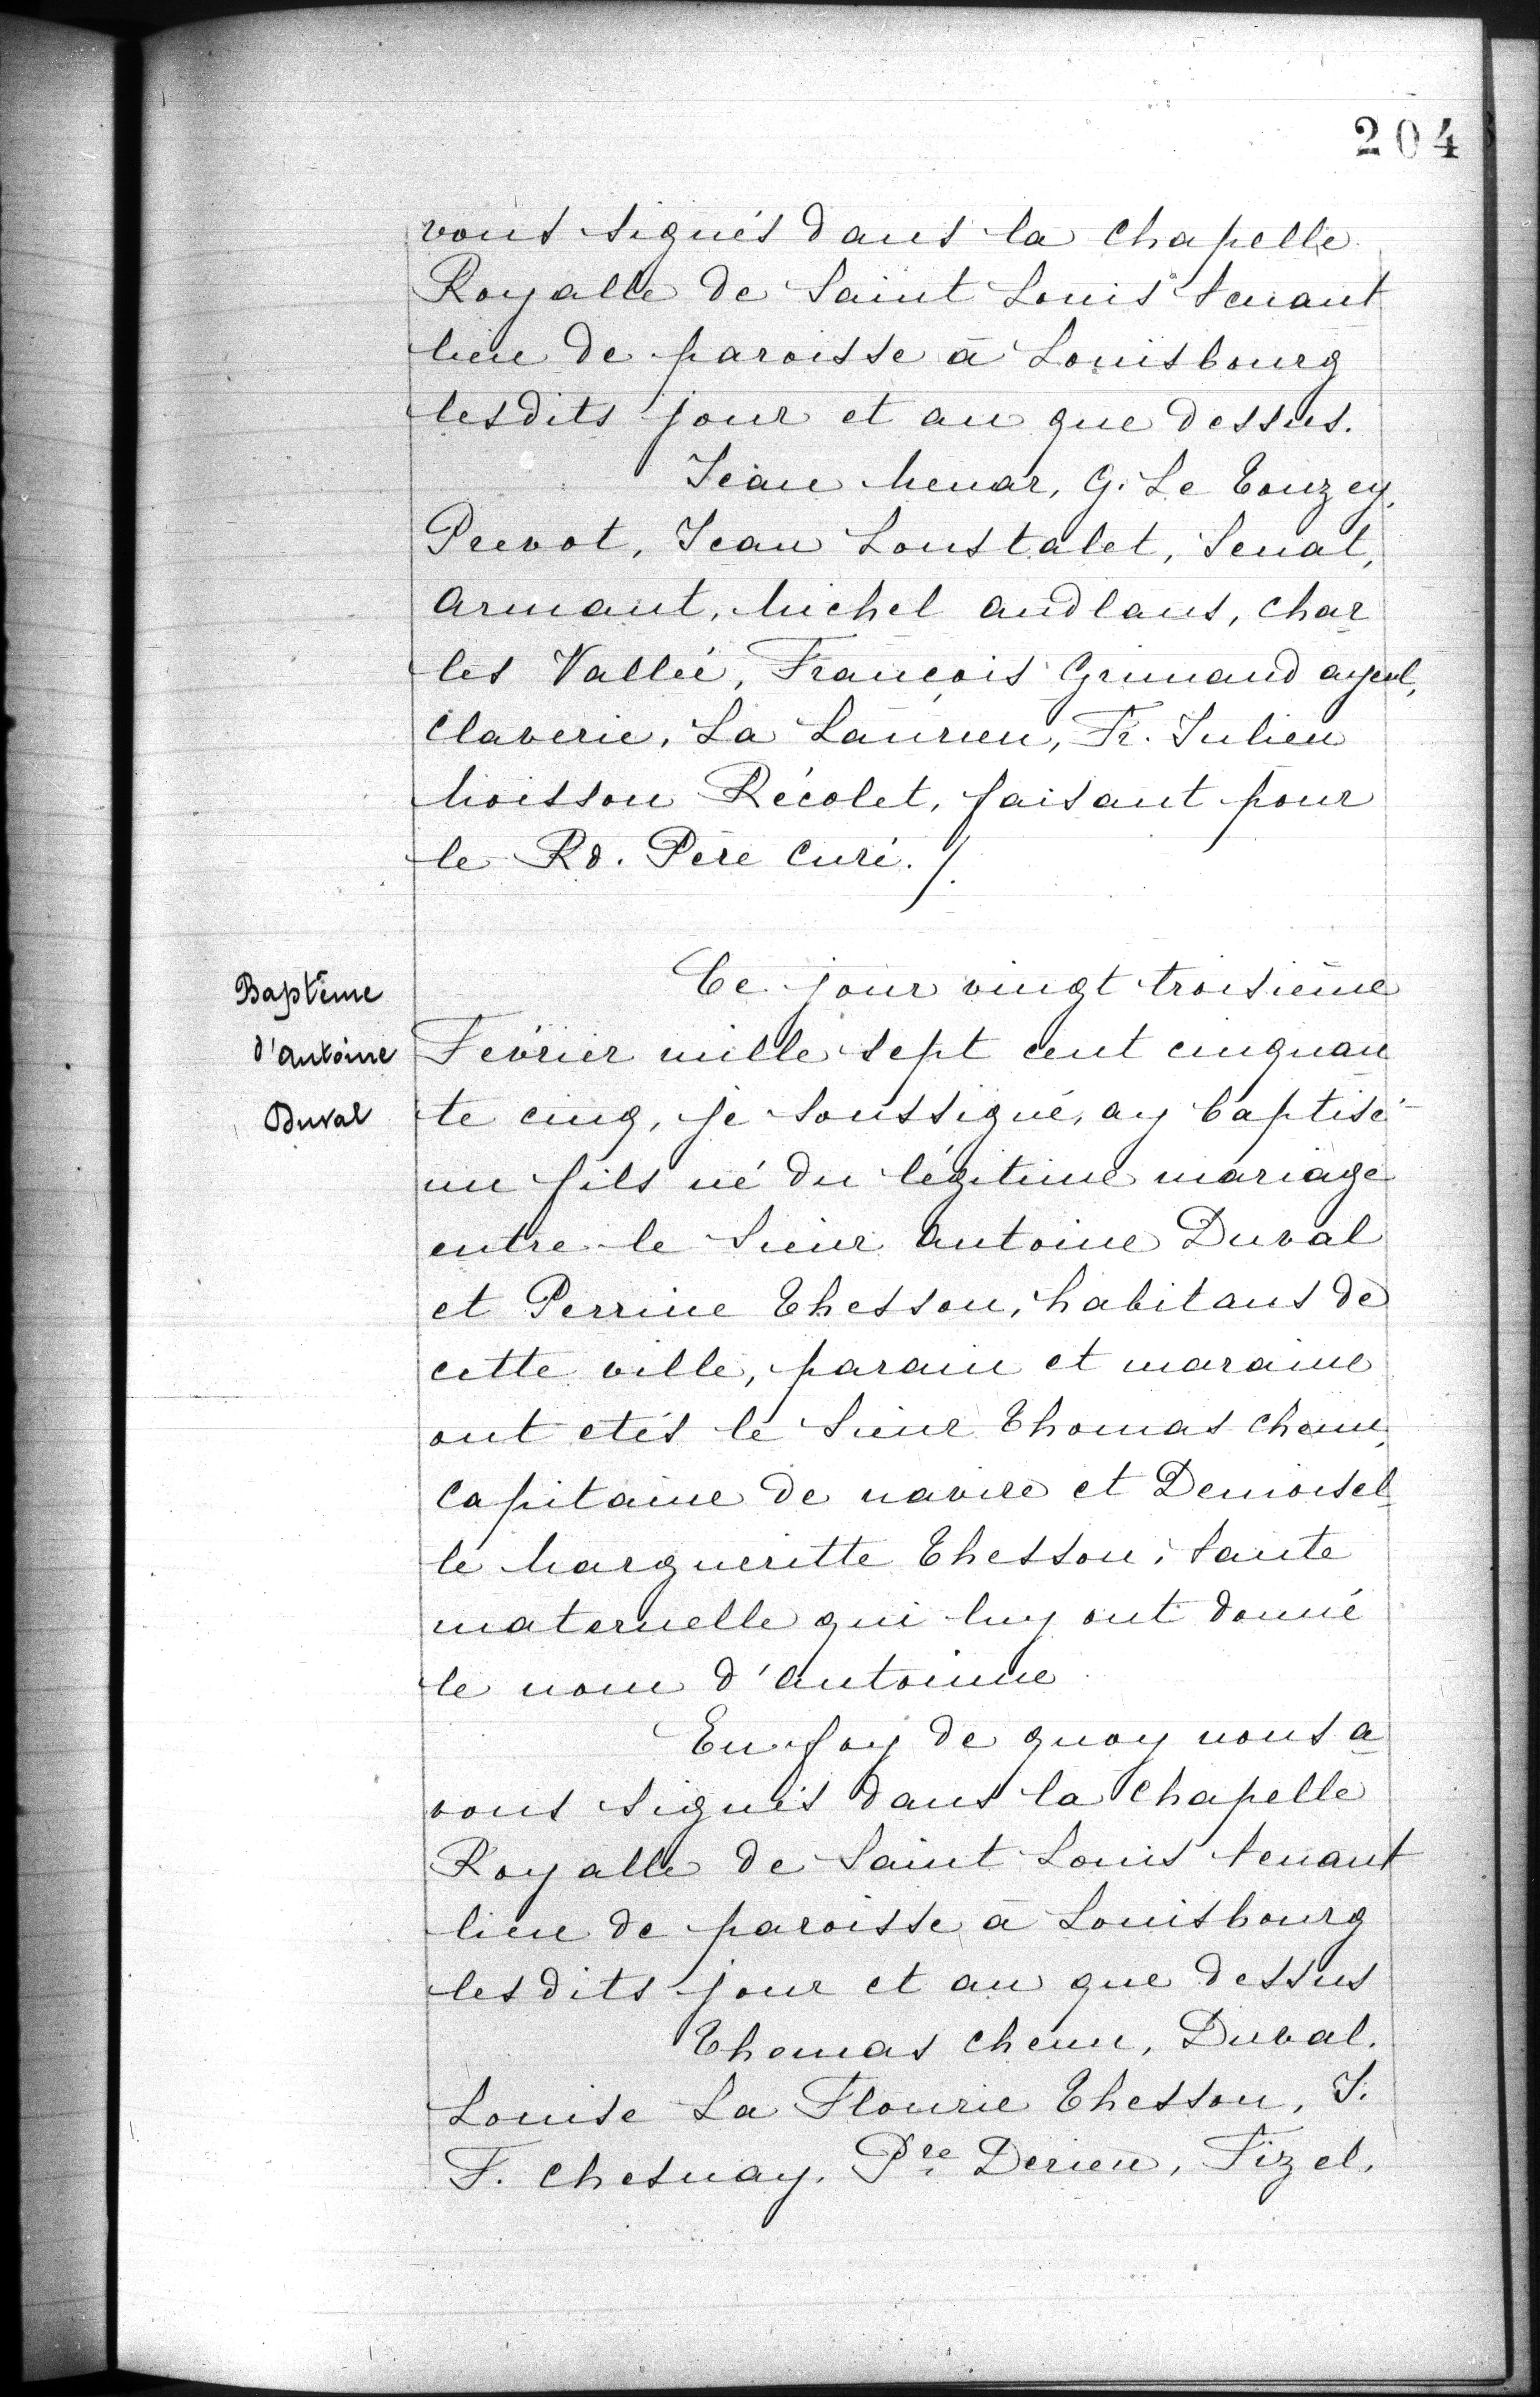 204
vons signés dans la chapelle
Royalle de Saint Louis tenant
lieu de paroisse à Louisbourg
lesdits jour et an que dessus.
Jean Menar, G. Le Touzey,
Prevot, Jean Loustalet, Senat,
Armant, Michel Andlans, Char
les Vallée, François Grimaud ayeul,
Claverie, La Laurieu, Fr. Julien
Moisson Récolet, faisant pour
le Rd. Père Curé. /.
Baptême
d'Antoine
Duval
Ce jour vingt troisième
Fevrier mille sept cent cinquan
te cinq, je soussigné, ay baptisé
un fils né du légitime mariage
entre le Sieur Antoine Duval
et Perrine Thesson, habitans de
cette ville, parain et maraine
ont etés le Sieur Thomas Chenu,
Capitaine de navire et Demoisel
le Margueritte Thesson, tante
maternelle qui luy ont donné
le nom d'Antoinne
En foy de quoy nous a
vons signés dans la Chapelle
Royalle de Saint Louis tenant
lieu de paroisse à Louisbourg
lesdits jour et an que dessus
Thomas Chenu, Duval.
Louise La Flourie Thesson, J.
F. Chesnay. Pre Derien, Fizel.